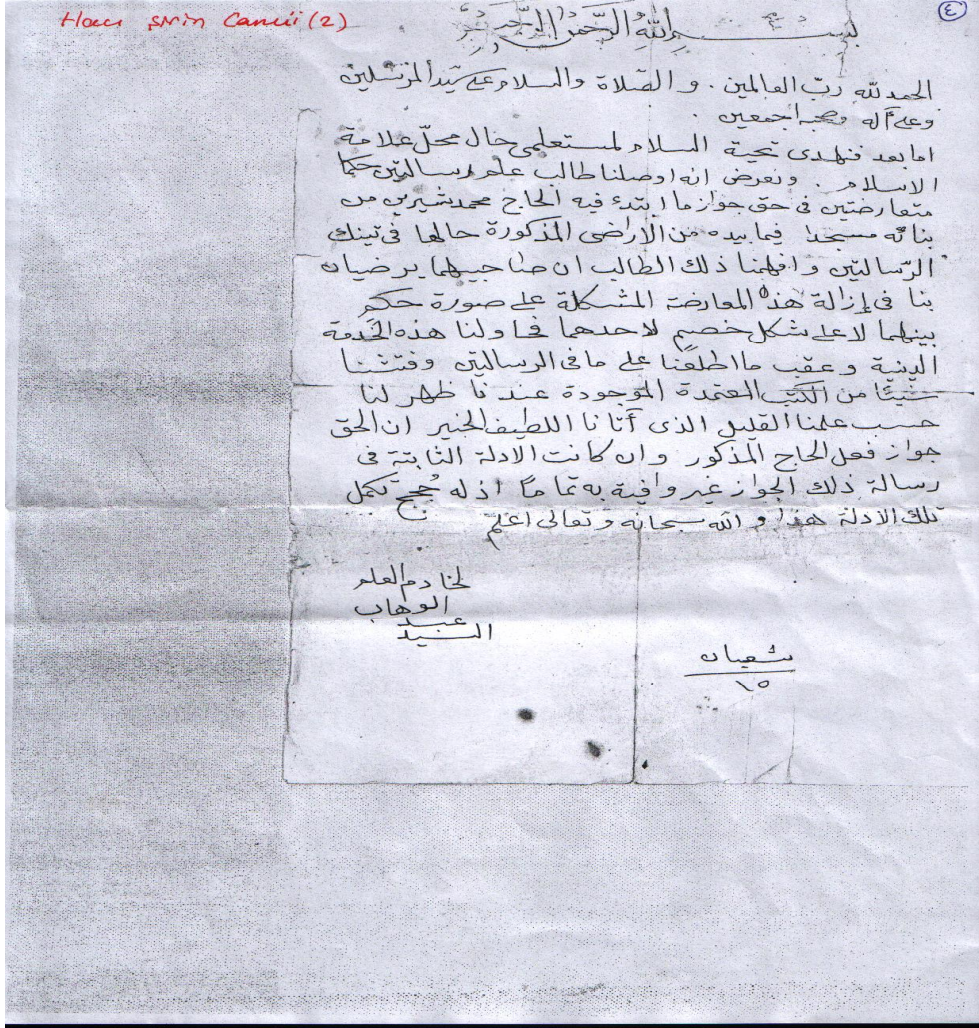 Hacı Şirin Camii (2)
٤
بسم الله الرحمن الرحيم
الحمد لله ربّ العالمين . و الصّلاة والسلام على سيّد المرسلين
وعلى آله وصحبه اجمعين .
اما بعد فنهدى تحية السلام لمستعلمى حال محلّ علامة
الاسلام . ونعرض انه اوصلنا طالب علم رسالتين حكما
متعارضتين فى حق جواز ما ابتدء فيه الحاج محمد شيرين من
بنائه مسجدا فيما بيده من الاراضى المذكورة حالها فى تينك
الرّسالتين و افهمنا ذلك الطالب ان صاحبيهما يرضيان
بنا فى إزالة هذه المعارضة المشكلة على صورة حكم
بينهما لا على شكل خصم لاحدهما فحاولنا هذه الخدمة
الدينية و عقب ما اطلعنا على ما فى الرسالتين وفتشنا
شيئًا من الكتب المعتمدة الموجودة عندنا ظهر لنا
حسب علمنا القليل الذى أتانا اللطيف الخبير ان الحق
جواز فعل الحاج المذكور وان كانت الادلة الثابتة فى
رسالة ذلك الجواز غير وافية به تمامًا اذ له حُجج تكمل
تلك الادلة هذا و الله سبحانه و تعالى اعلم
لخادم العلم
الوهاب
عبد
السيد
شعبان
١٥